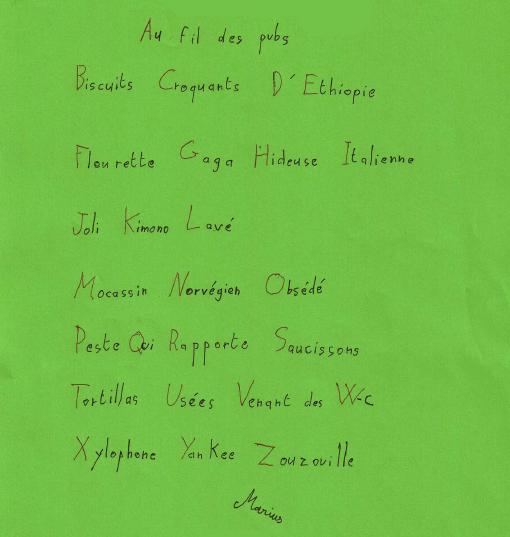 Au fil des pubs
Biscuits Croquants D'Ethiopie
Fleurette Gaga Hideuse Italienne
Joli Kimono Lavé
Mocassin Norvégien Obsédé
Peste Qui Rapporte Saucissons
Tortillas Usées Venant des W-c
Xylophone Yankee Zouzouville
Marius